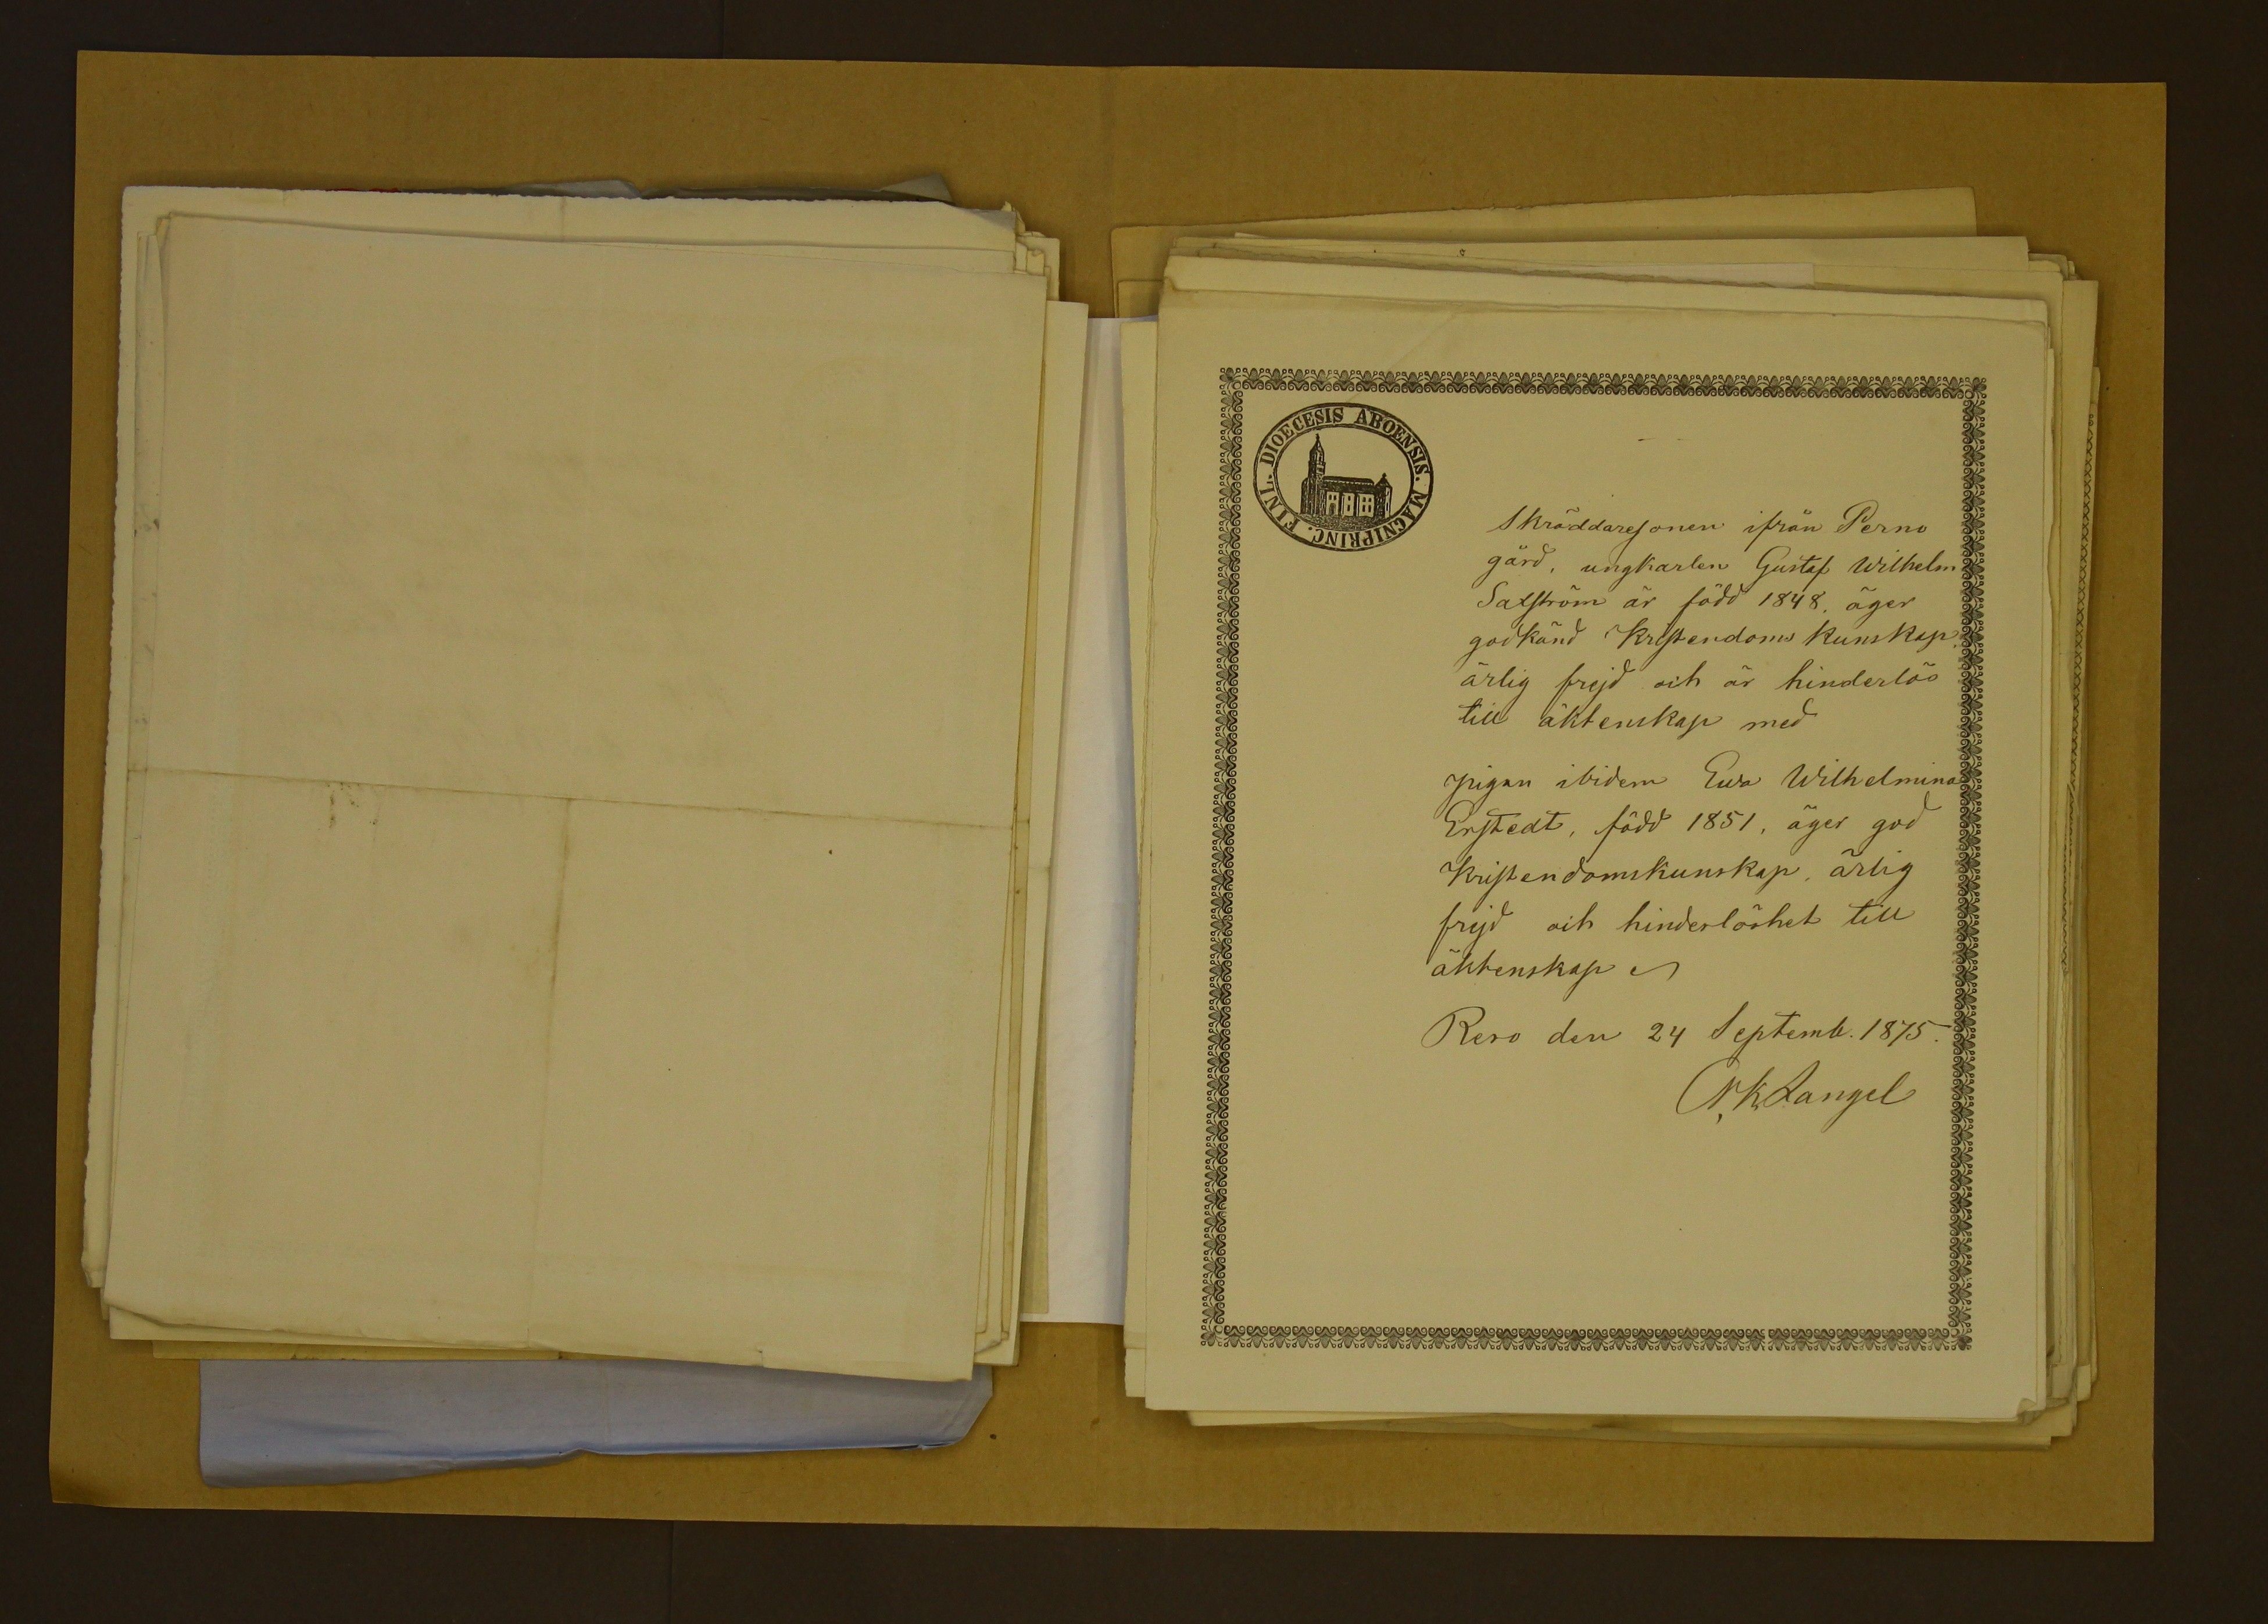 DIOECESIS ABOENSIS. MAGNIPRINC. FINL.
Skräddaresonen ifrån Perno
gård, ungkarlen Gustaf Wilhelm
Saxström är född 1848, äger
godkänd Kristendoms kunskap,
ärlig frejd och är hinderlös
till äktenskap med
pigan ibidem Ewa Wilhelmina
Enstedt, född 1851, äger god
Kristendomskunskap, ärlig
frejd och hinderlöshet till
äktenskap
Reso den 24 Septemb. 1875.
K. Langel